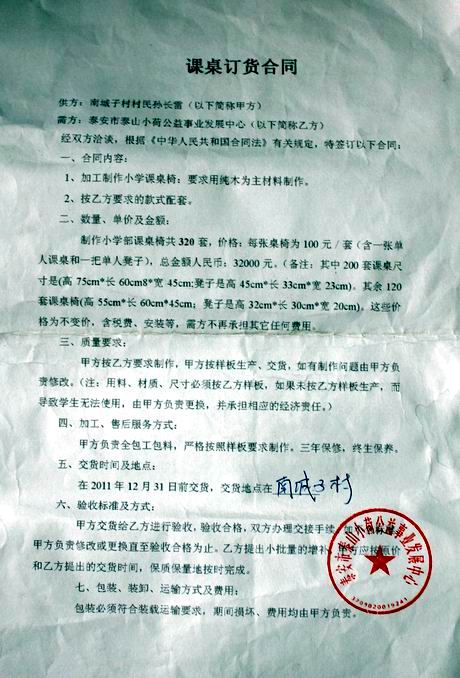 课桌订货合同
供方：南城子村村民孙长雷（以下简称甲方）
需方：泰安市泰山小荷公益事业发展中心（以下简称乙方）
经双方洽谈，根据《中华人民共和国合同法》有关规定，特签订以下合同：
一、合同内容：
1、加工制作小学课桌椅：要求用纯木为主材料制作。
2、按乙方要求的款式配套。
二、数量、单价及金额：
制作小学部课桌椅共 320 套，价格：每张桌椅为 100 元／套（含一张单
人课桌和一把单人凳子），总金额人民币：32000 元。（备注：其中 200 套课桌尺
寸是(高 75cm*长 60cm8*宽 45cm;凳子是高 45cm*长 33cm*宽 23cm)。其余 120
套课桌椅(高 55cm*长 60cm*45cm；凳子是高 32cm*长 30cm*宽 20cm)。这些价
格为不变价，含税费、安装等，需方不再承担其它任何费用。
三、质量要求：
甲方按乙方要求制作，甲方按样板生产、交货，如有制作问题由甲方负
责修改。（注：用料、材质、尺寸必须按乙方样板，如果未按乙方样板生产，而
导致学生无法使用，由甲方负责更换，并承担相应的经济责任。）
四、加工、售后服务方式：
甲方负责全包工包料，严格按照样板要求制作。三年保修，终生保养。
五、交货时间及地点：
在 2011 年 12 月 31 日前交货，交货地点在 南城子村
六、验收标准及方式：
甲方交货给乙方进行验收，验收合格，双方办理交接手续，
甲方负责修改或更换直至验收合格为止。乙方提出小批量的增补，甲方应按原价
和乙方提出的交货时间，保质保量地按时完成。
七、包装、装卸、运输方式及费用：
包装必须符合装载运输要求，期间损坏、费用均由甲方负责。
泰安市泰山小荷公益事业发展中心
3709020019241